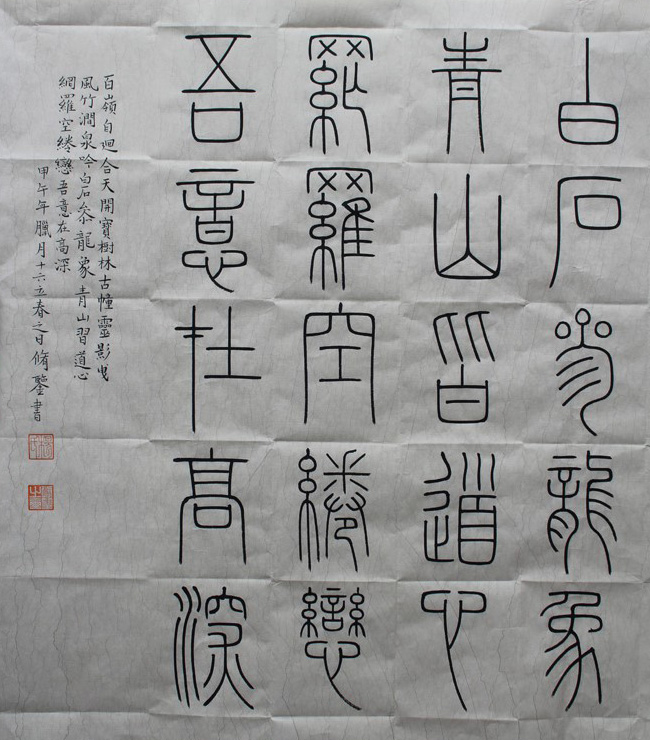 白石參龍象
青山習道心
網羅空綣戀
吾意在高深
百嶺自迴合天開寶樹林古幢靈影曳
風竹澗泉吟白石參龍象青山習道心
網羅空綣戀吾意在高深
甲午年臘月十六立春之日脩鑒書